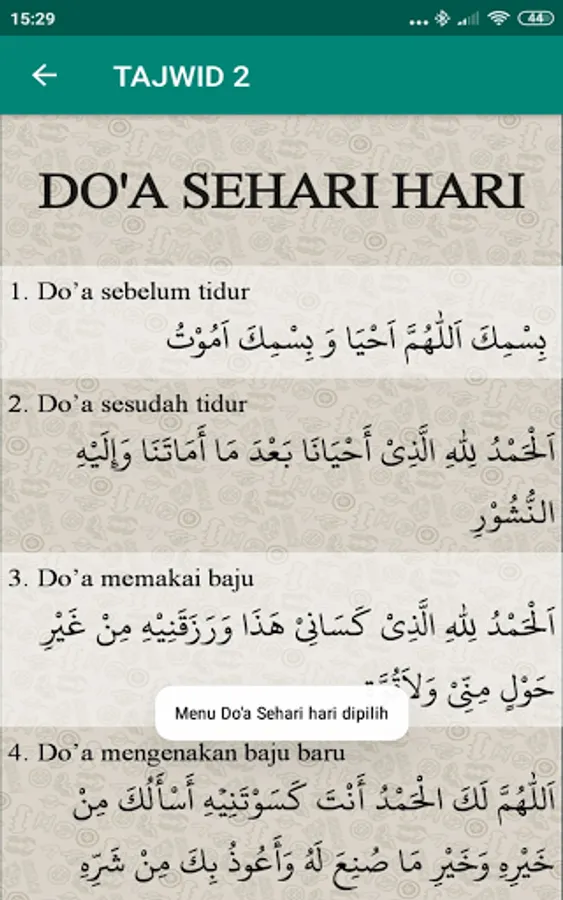 15:29
44
TAJWID 2
DO'A SEHARI HARI
1. Do’a sebelum tidur
بِسْمِكَ اَللّٰهُمَّ اَحْيَا وَ بِسْمِكَ اَمُوْتُ
2. Do’a sesudah tidur
اَلْحَمْدُ لِلّٰهِ الَّذِىْ أَحْيَانَا بَعْدَ مَا أَمَاتَنَا وَإِلَيْهِ
النُّشُوْرِ
3. Do’a memakai baju
اَلْحَمْدُ لِلّٰهِ الَّذِىْ كَسَانِىْ هَذَا وَرَزَقَنِيْهِ مِنْ غَيْرِ
حَوْلٍ مِنِّىْ
Menu Do'a Sehari hari dipilih
4. Do’a mengenakan baju baru
اَللّٰهُمَّ لَكَ الْحَمْدُ أَنْتَ كَسَوْتَنِيْهِ أَسْأَلُكَ مِنْ
خَيْرِهِ وَخَيْرِ مَا صُنِعَ لَهُ وَأَعُوذُ بِكَ مِنْ شَرِّهِ